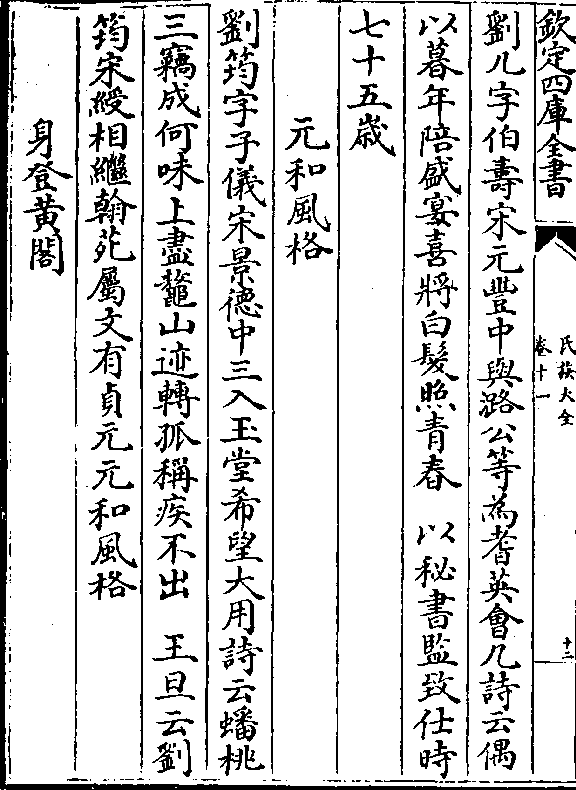 欽定四庫全書
氏族大全
卷十一
十二
劉几字伯壽宋元豐中與潞公等為耆英會几詩云偶
以暮年陪盛宴喜將白髮照青春　以秘書監致仕時
七十五歲
元和風格
劉筠字子儀宋景德中三入玉堂希望大用詩云蟠桃
三竊成何味上盡鼇山迹轉孤稱疾不出　王旦云劉
筠宋綬相繼翰苑屬文有貞元元和風格
身登黃閣